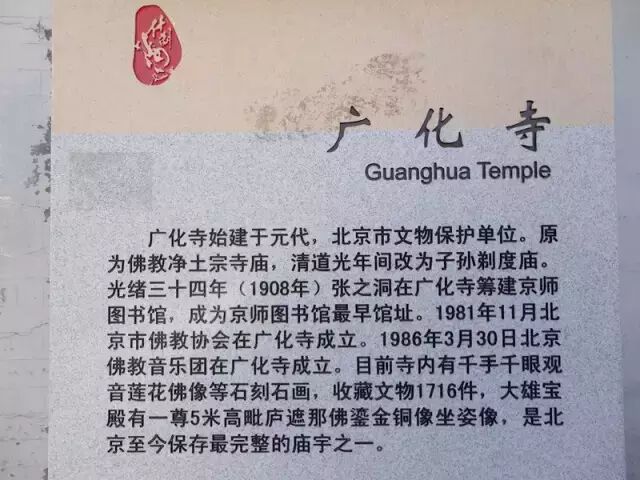 广化寺
Guanghua Temple
广化寺始建于元代，北京市文物保护单位。原
为佛教净土宗寺庙，清道光年间改为子孙剃度庙。
光绪三十四年（1908年）张之洞在广化寺筹建京师
图书馆，成为京师图书馆最早馆址。1981年11月北
京市佛教协会在广化寺成立。1986年3月30日北京
佛教音乐团在广化寺成立。目前寺内有千手千眼观
音莲花佛像等石刻石画，收藏文物1716件，大雄宝
殿有一尊5米高毗庐遮那佛鎏金铜像坐姿像，是北
京至今保存最完整的庙宇之一。